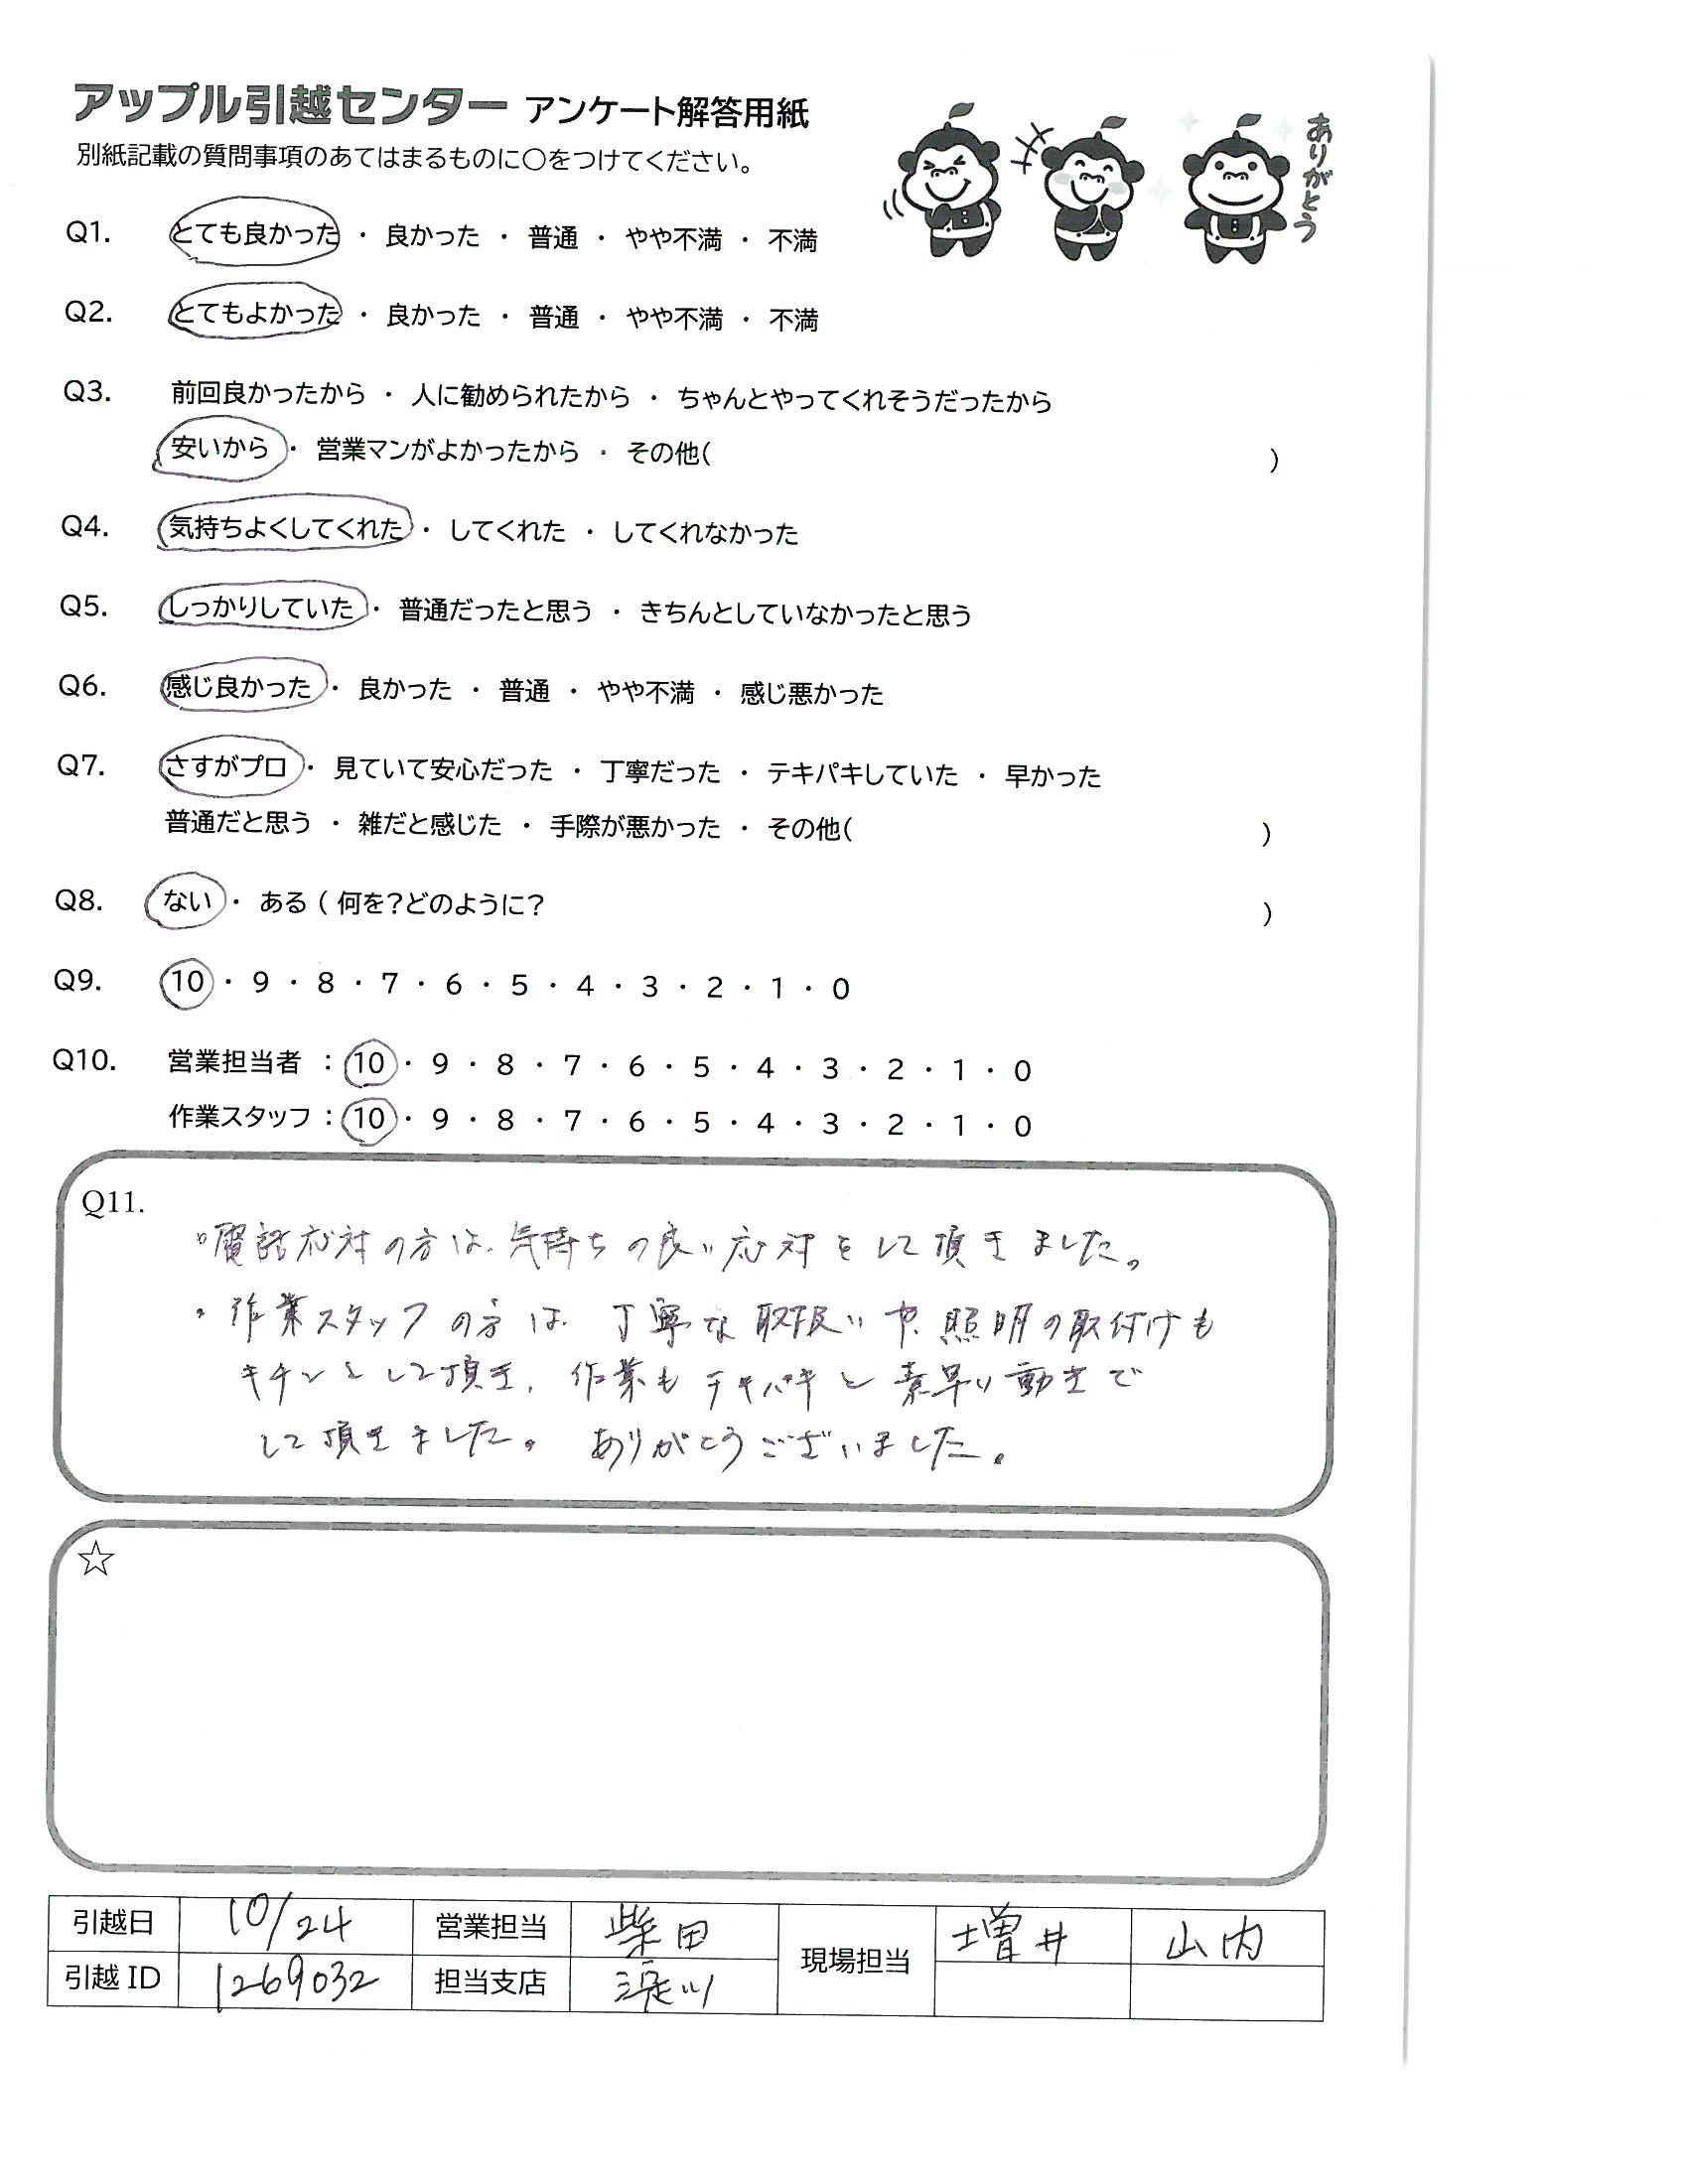 アップル引越センター アンケート解答用紙
別紙記載の質問事項のあてはまるものに〇をつけてください。
ありがとう
Q1. とても良かった ・ 良かった ・ 普通 ・ やや不満 ・ 不満
Q2. とてもよかった ・ 良かった ・ 普通 ・ やや不満 ・ 不満
Q3. 前回良かったから ・ 人に勧められたから ・ ちゃんとやってくれそうだったから
安いから ・ 営業マンがよかったから ・ その他( )
Q4. 気持ちよくしてくれた ・ してくれた ・ してくれなかった
Q5. しっかりしていた ・ 普通だったと思う ・ きちんとしていなかったと思う
Q6. 感じ良かった ・ 良かった ・ 普通 ・ やや不満 ・ 感じ悪かった
Q7. さすがプロ ・ 見ていて安心だった ・ 丁寧だった ・ テキパキしていた ・ 早かった
普通だと思う ・ 雑だと感じた ・ 手際が悪かった ・ その他( )
Q8. ない ・ ある ( 何を?どのように? )
Q9. 10 ・ 9 ・ 8 ・ 7 ・ 6 ・ 5 ・ 4 ・ 3 ・ 2 ・ 1 ・ 0
Q10. 営業担当者 : 10 ・ 9 ・ 8 ・ 7 ・ 6 ・ 5 ・ 4 ・ 3 ・ 2 ・ 1 ・ 0
作業スタッフ : 10 ・ 9 ・ 8 ・ 7 ・ 6 ・ 5 ・ 4 ・ 3 ・ 2 ・ 1 ・ 0
Q11.
・電話応対の方は、気持ちの良い応対をして頂きました。
・作業スタッフの方は、丁寧な取扱いや、照明の取付けも
キチンとして頂き、作業もテキパキと素早い動きで
して頂きました。ありがとうございました。
☆
引越日 10/24 営業担当 柴田 現場担当 増井 山内
引越 ID 1269032 担当支店 淀川